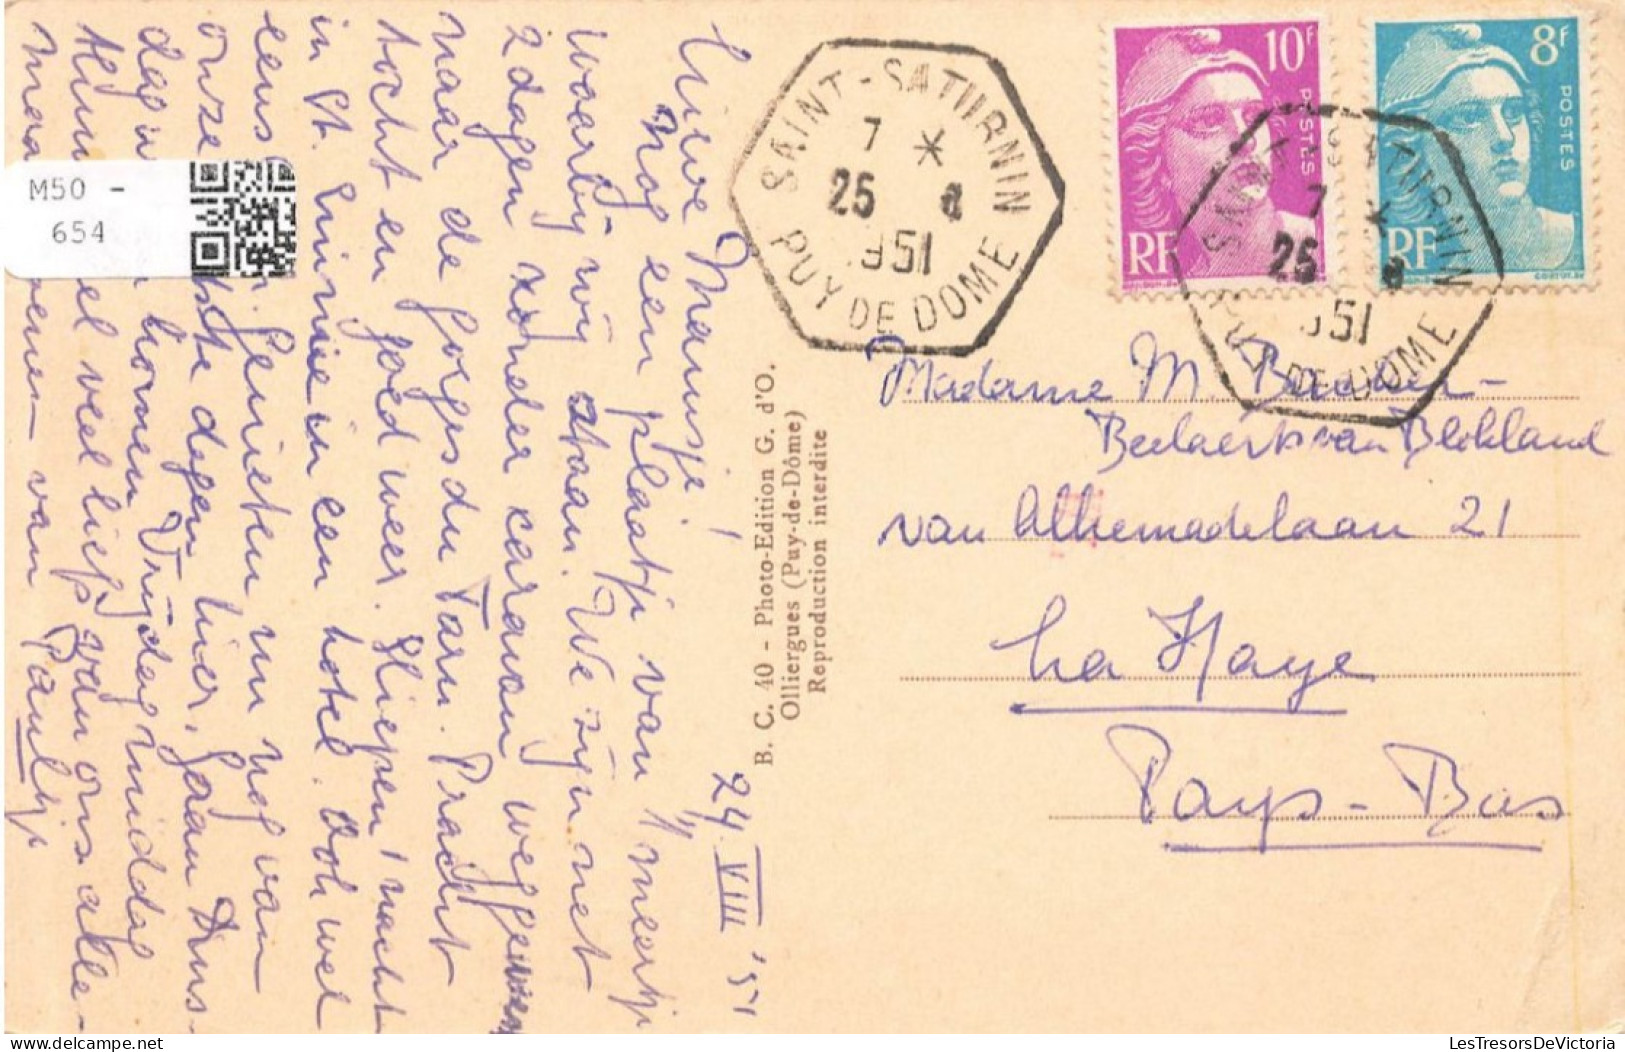 24 VIII '51
Lieve Mamusje!
Nog een plaatje van 't meertje
waarbij wij staan. We zijn net
2 dagen zonder caravan weggeweest
naar de Gorges du Tarn. Pracht
tocht en goed weer. Sliepen 1 nacht
in St. Enimie in een hotel. Ook wel
eens . Genieten nu nog van
onze dagen hier. Gaan Dins-
dag komen Vrijdagmiddag
veel liefs van ons alle-
maal van Paultje
M50 -
654
B. C. 40 - Photo-Edition G. d'O.
Olliergues (Puy-de-Dôme)
Reproduction interdite
SAINT-SATURNIN
7 *
25 8
1951
PUY DE DOME
10F
POSTES
RF
8F
POSTES
RF
SAINT-SATURNIN
7 *
25 8
1951
PUY DE DOME
Madame M. -
Beelaerts van Blokland
van Alkemadelaan 21
La Haye
Pays-Bas
www.delcampe.net
LesTresorsDeVictoria